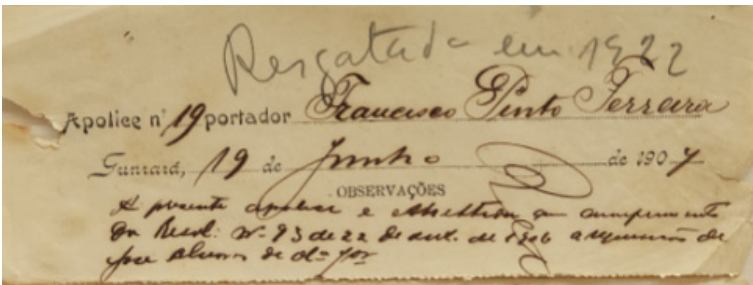 Resgatada em 1922
Apolice nº 19 portador Francisco Pinto Ferreira
Gumará, 19 de Junho de 1907
OBSERVAÇÕES
A presente apolice é em cumprimento
da Resol: Nº 93 de 22 de de 1906 a de
José de